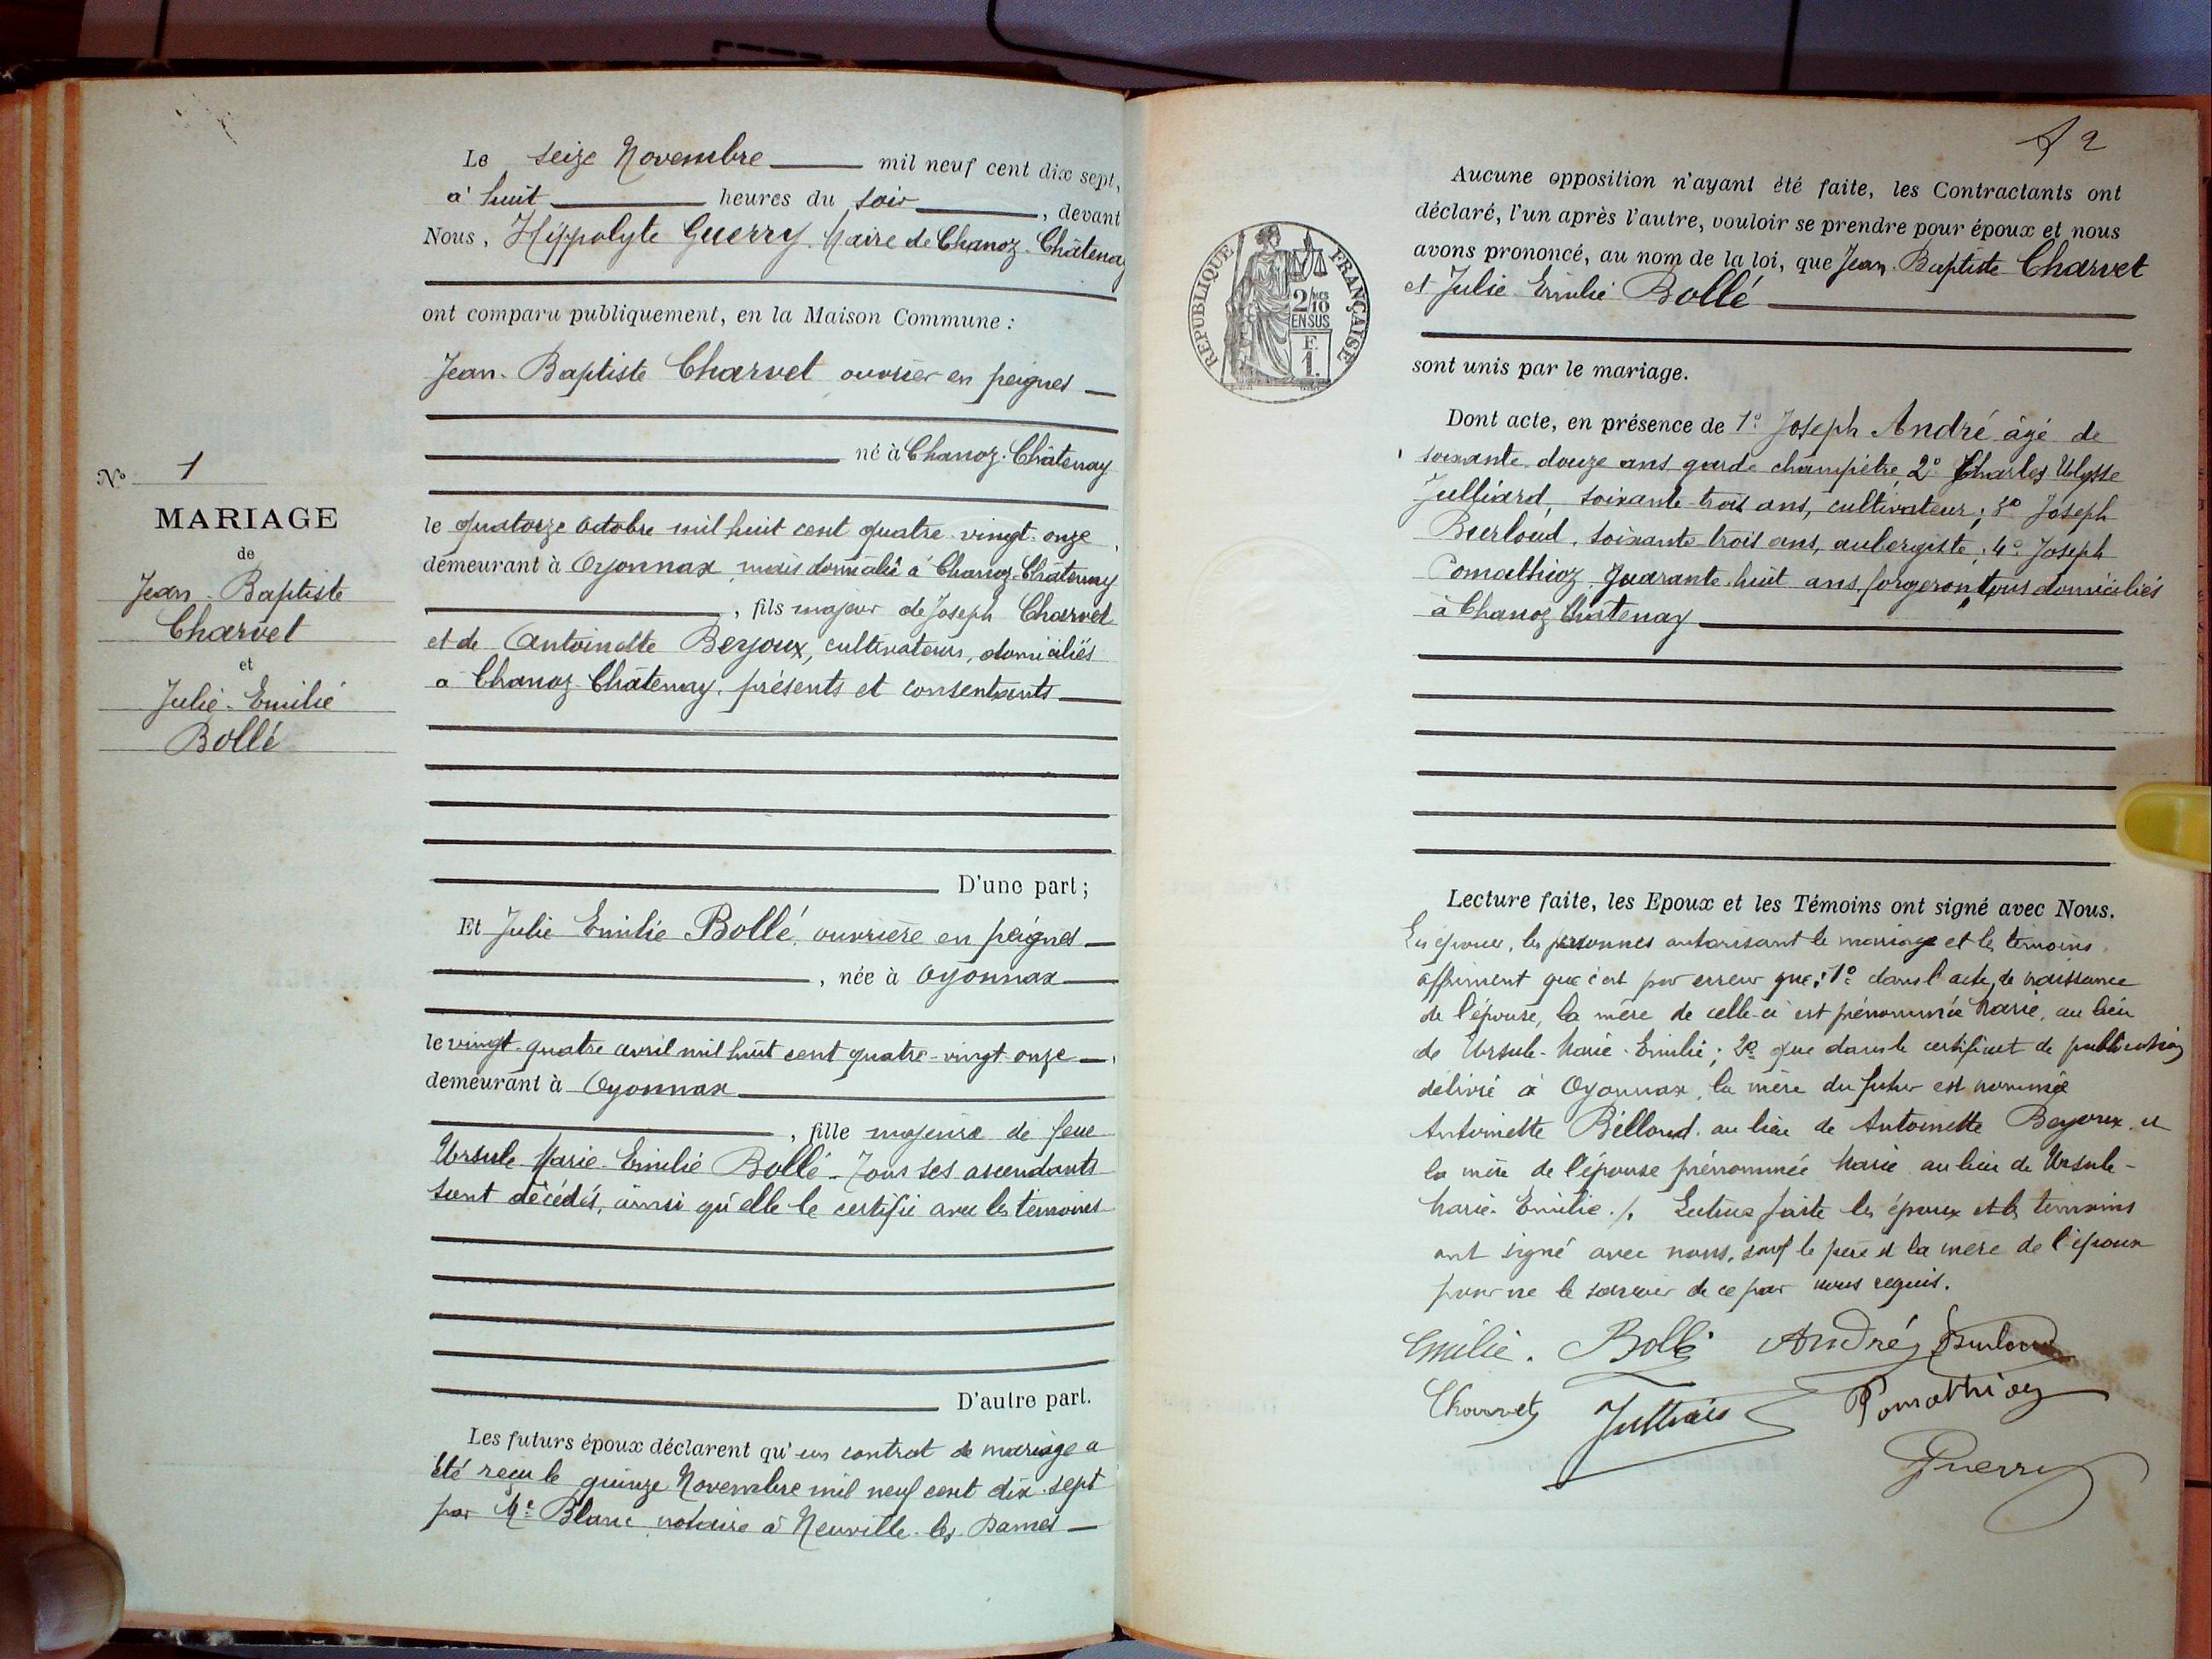 Nº 1
MARIAGE
de
Jean-Baptiste
Charvet
et
Julie-Emilie
Bollé
Le seize Novembre mil neuf cent dix sept,
à huit heures du soir, devant
Nous, Hippolyte Guerry. Maire de Chanoz-Châtenay
ont comparu publiquement, en la Maison Commune :
Jean-Baptiste Charvet ouvrier en peignes
né à Chanoz-Châtenay
le quatorze octobre mil huit cent quatre-vingt-onze,
demeurant à Oyonnax, mais domicilié à Chanoz-Châtenay
, fils majeur de Joseph Charvet
et de Antoinette Beyoux, cultivateurs, domiciliés
à Chanoz-Châtenay, présents et consentants
D'une part ;
Et Julie Emilie Bollé, ouvrière en peignes
, née à Oyonnax
le vingt-quatre avril mil huit cent quatre-vingt-onze,
demeurant à Oyonnax
, fille majeure de feue
Ursule Marie-Emilie Bollé - Tous ses ascendants
sont décédés, ainsi qu'elle le certifie avec les témoins
D'autre part.
Les futurs époux déclarent qu'un contrat de mariage a
été reçu le quinze Novembre mil neuf cent dix-sept
par Me Blanc notaire à Neuville-les-Dames
2
RÉPUBLIQUE FRANÇAISE
2/MES
10
EN SUS
F.
1.
Aucune opposition n'ayant été faite, les Contractants ont
déclaré, l'un après l'autre, vouloir se prendre pour époux et nous
avons prononcé, au nom de la loi, que Jean-Baptiste Charvet
et Julie Emilie Bollé
sont unis par le mariage.
Dont acte, en présence de 1º Joseph André âgé de
soixante-douze ans garde champêtre, 2º Charles Ulysse
Julliard, soixante-trois ans, cultivateur ; 3º Joseph
Burloud, soixante-trois ans, aubergiste ; 4º Joseph
Pomathioz, quarante-huit ans, forgeron, tous domiciliés
à Chanoz Châtenay
Lecture faite, les Epoux et les Témoins ont signé avec Nous.
Les époux, les personnes autorisant le mariage et les témoins
affirment que c'est par erreur que : 1º dans l'acte de naissance
de l'épouse, la mère de celle-ci est prénommée Marie, au lieu
de Ursule-Marie-Emilie ; 2º que dans le certificat de publication
délivré à Oyonnax, la mère du futur est nommée
Antoinette Billoud au lieu de Antoinette Beyoux et
la mère de l'épouse prénommée Marie au lieu de Ursule-
Marie-Emilie./. Lecture faite les époux et les témoins
ont signé avec nous, sauf le père et la mère de l'époux
pour ne le savoir de ce par nous requis.
Emilie. Bollé André Burloud
Charvet Julliard Pomathioz
Guerry